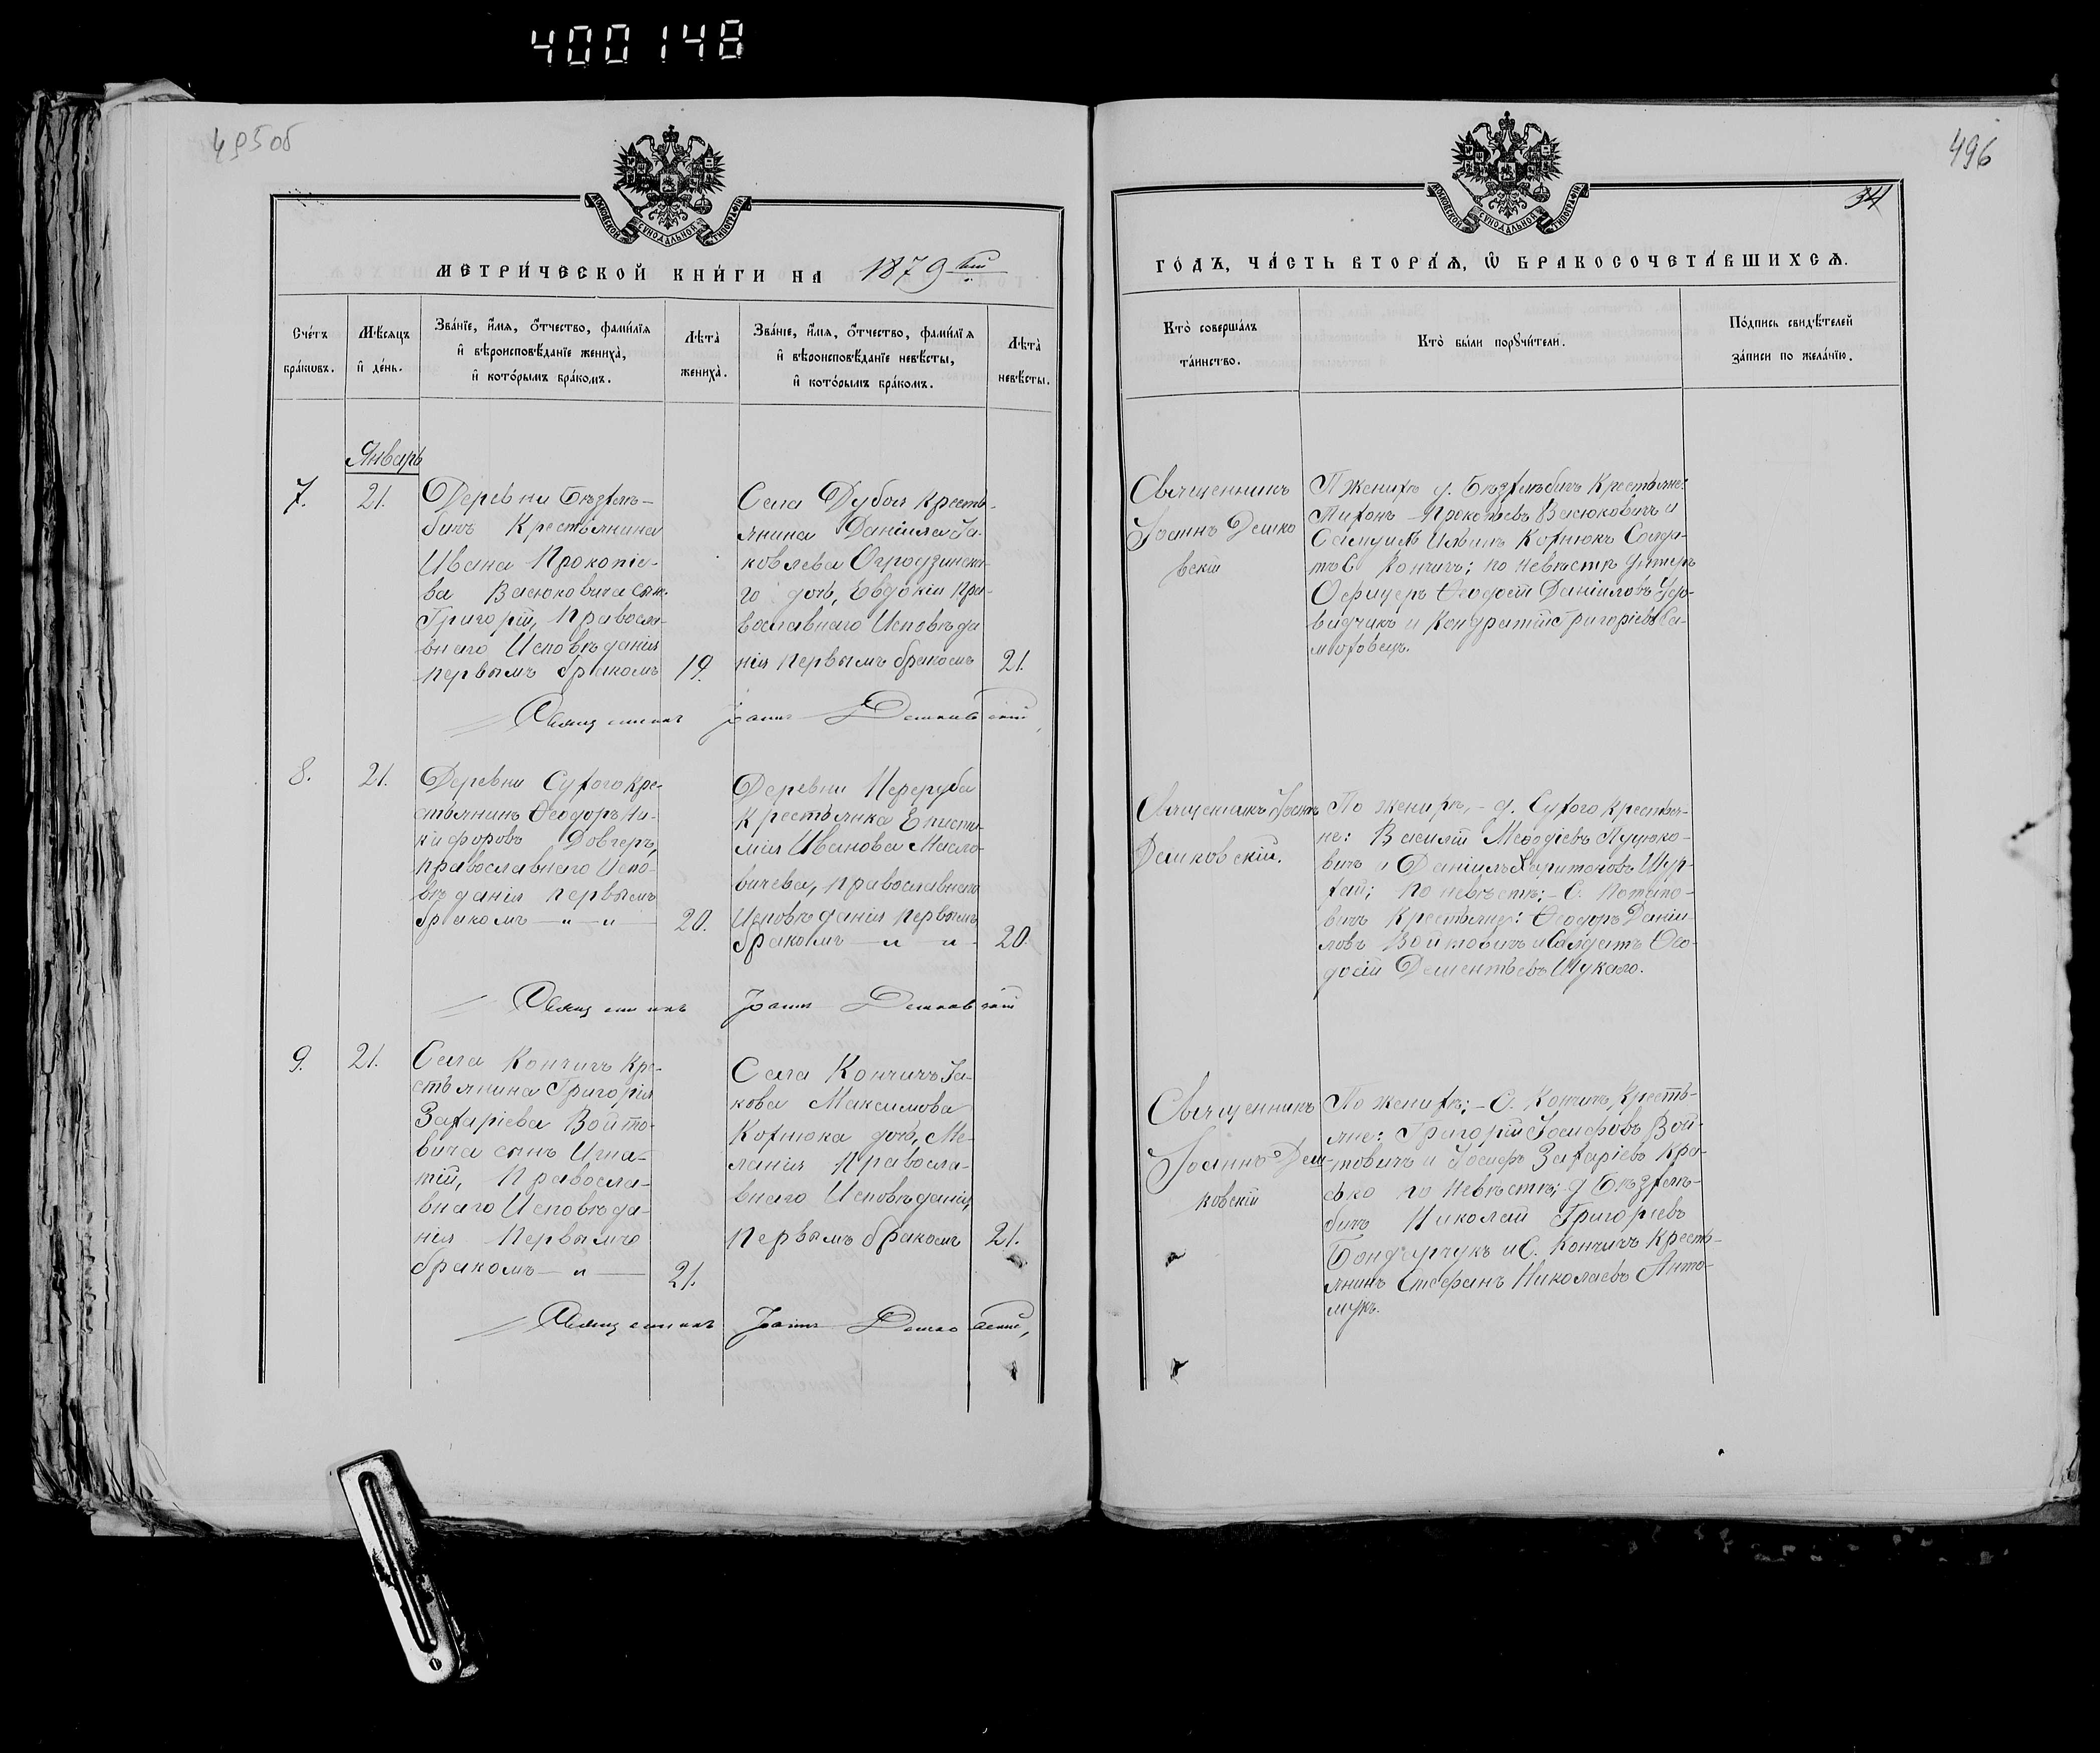 400148
495об
496
34
МОСКОВСКОЙ СѴНОДАЛЬНОЙ ТИПОГРАФІИ
МОСКОВСКОЙ СѴНОДАЛЬНОЙ ТИПОГРАФІИ
МЕТРИ́ЧЕСКОЙ КНИ́ГИ НА 1879 год
ГО́ДЪ, ЧА́СТЬ ВТОРА́Я, Ѡ҆ БРАКОСОЧЕТА́ВШИХСѦ.
Сче́тъ
бра́кѡвъ.
Мѣ́сяцъ
и҆ де́нь.
Зва́нїе, и҆́мѧ, ѻ҆́тчество, фами́лїѧ
и҆ вѣроисповѣ́данїе жениха̀,
и҆ кото́рымъ бра́комъ.
Лѣ́та̀
жениха̀.
Зва́нїе, и҆́мѧ, ѻ҆́тчество, фами́лїѧ
и҆ вѣроисповѣ́данїе невѣ́сты,
и҆ кото́рымъ бра́комъ.
Лѣ́та̀
невѣ́сты.
Кто̀ соверша́лъ
та́инство.
Кто̀ бы́ли порꙋчи́тели.
По́дпись свидѣ́телей
за́писи по жела́нїю.
Январь
7.
21.
Деревни Бѣздѣж-
бичъ Крестьянина
Ивана Прокопіе-
ва Васюковича сынъ
Григорій, Правосла-
внаго Исповѣданія
первымъ бракомъ
19.
Села Дубоя Кресть-
янина Даніила Іа-
ковлева Огродзинска-
го дочь, Евдокія Пра-
вославнаго Исповѣда
нія первымъ бракомъ
21.
Священникъ
Іоаннъ Демко
вскій
Прокопіевъ Васюковичъ и
Самуилъ Ильинъ Кохнюкъ Солда-
тъ С Кончичъ; по невѣстѣ Унтеръ
Офицеръ Ѳеодосій Даніиловъ
и Кондратій Григоріевъ Са-
моховецъ.
Священникъ Іоаннъ Демковскій,
8.
21.
Деревни Сухого Кре-
стьянинъ Ѳеодоръ Ни-
кифоровъ Довгеръ,
православнаго Испо-
вѣданія первымъ
бракомъ — „ — „ —
20.
Деревни Переруба
Крестьянка Еписти-
мія Иванова Масло-
вичева, православнаго
Исповѣданія первымъ
бракомъ — „ — „ -
20.
Священникъ Іоаннъ
Демковскій.
По женихѣ, – д. Сухого Крестья-
не: Василій Меѳодіевъ Луцюко-
вичъ и Даніилъ Харитоновъ Шур-
хай; по невѣстѣ; – С. Потапо-
вичъ Крестьяне: Ѳеодоръ Даніи-
ловъ Войтовичъ и Салдатъ Ѳео-
досій Дементьевъ Шукало.
Священникъ Іоаннъ Демковскій
9.
21.
Села Кончичъ Кре-
стьянина Григорія
Захаріева Войто-
вича сынъ Игна-
тій, Правосла-
внаго Исповѣда-
нія Первымъ
бракомъ — „ —
21.
Села Кончичъ Іа-
кова Максимова
Кохнюка дочь, Ме-
ланія Правосла-
внаго Исповѣданія,
первымъ бракомъ
21.
Священникъ
Іоаннъ Дем-
ковскій
По женихѣ; – С. Кончичъ, Кресть-
яне: Григорій Іосифовъ Вой-
товичъ и Іосифъ Захаріевъ Кра-
сько по невѣстѣ; д Бѣздѣж-
бичъ Николай Григоріевъ
Бондарчукъ и С. Кончичъ Кресть-
янинъ Стефанъ Николаевъ Анто-
мукъ.
Священникъ Іоаннъ Демковскій,